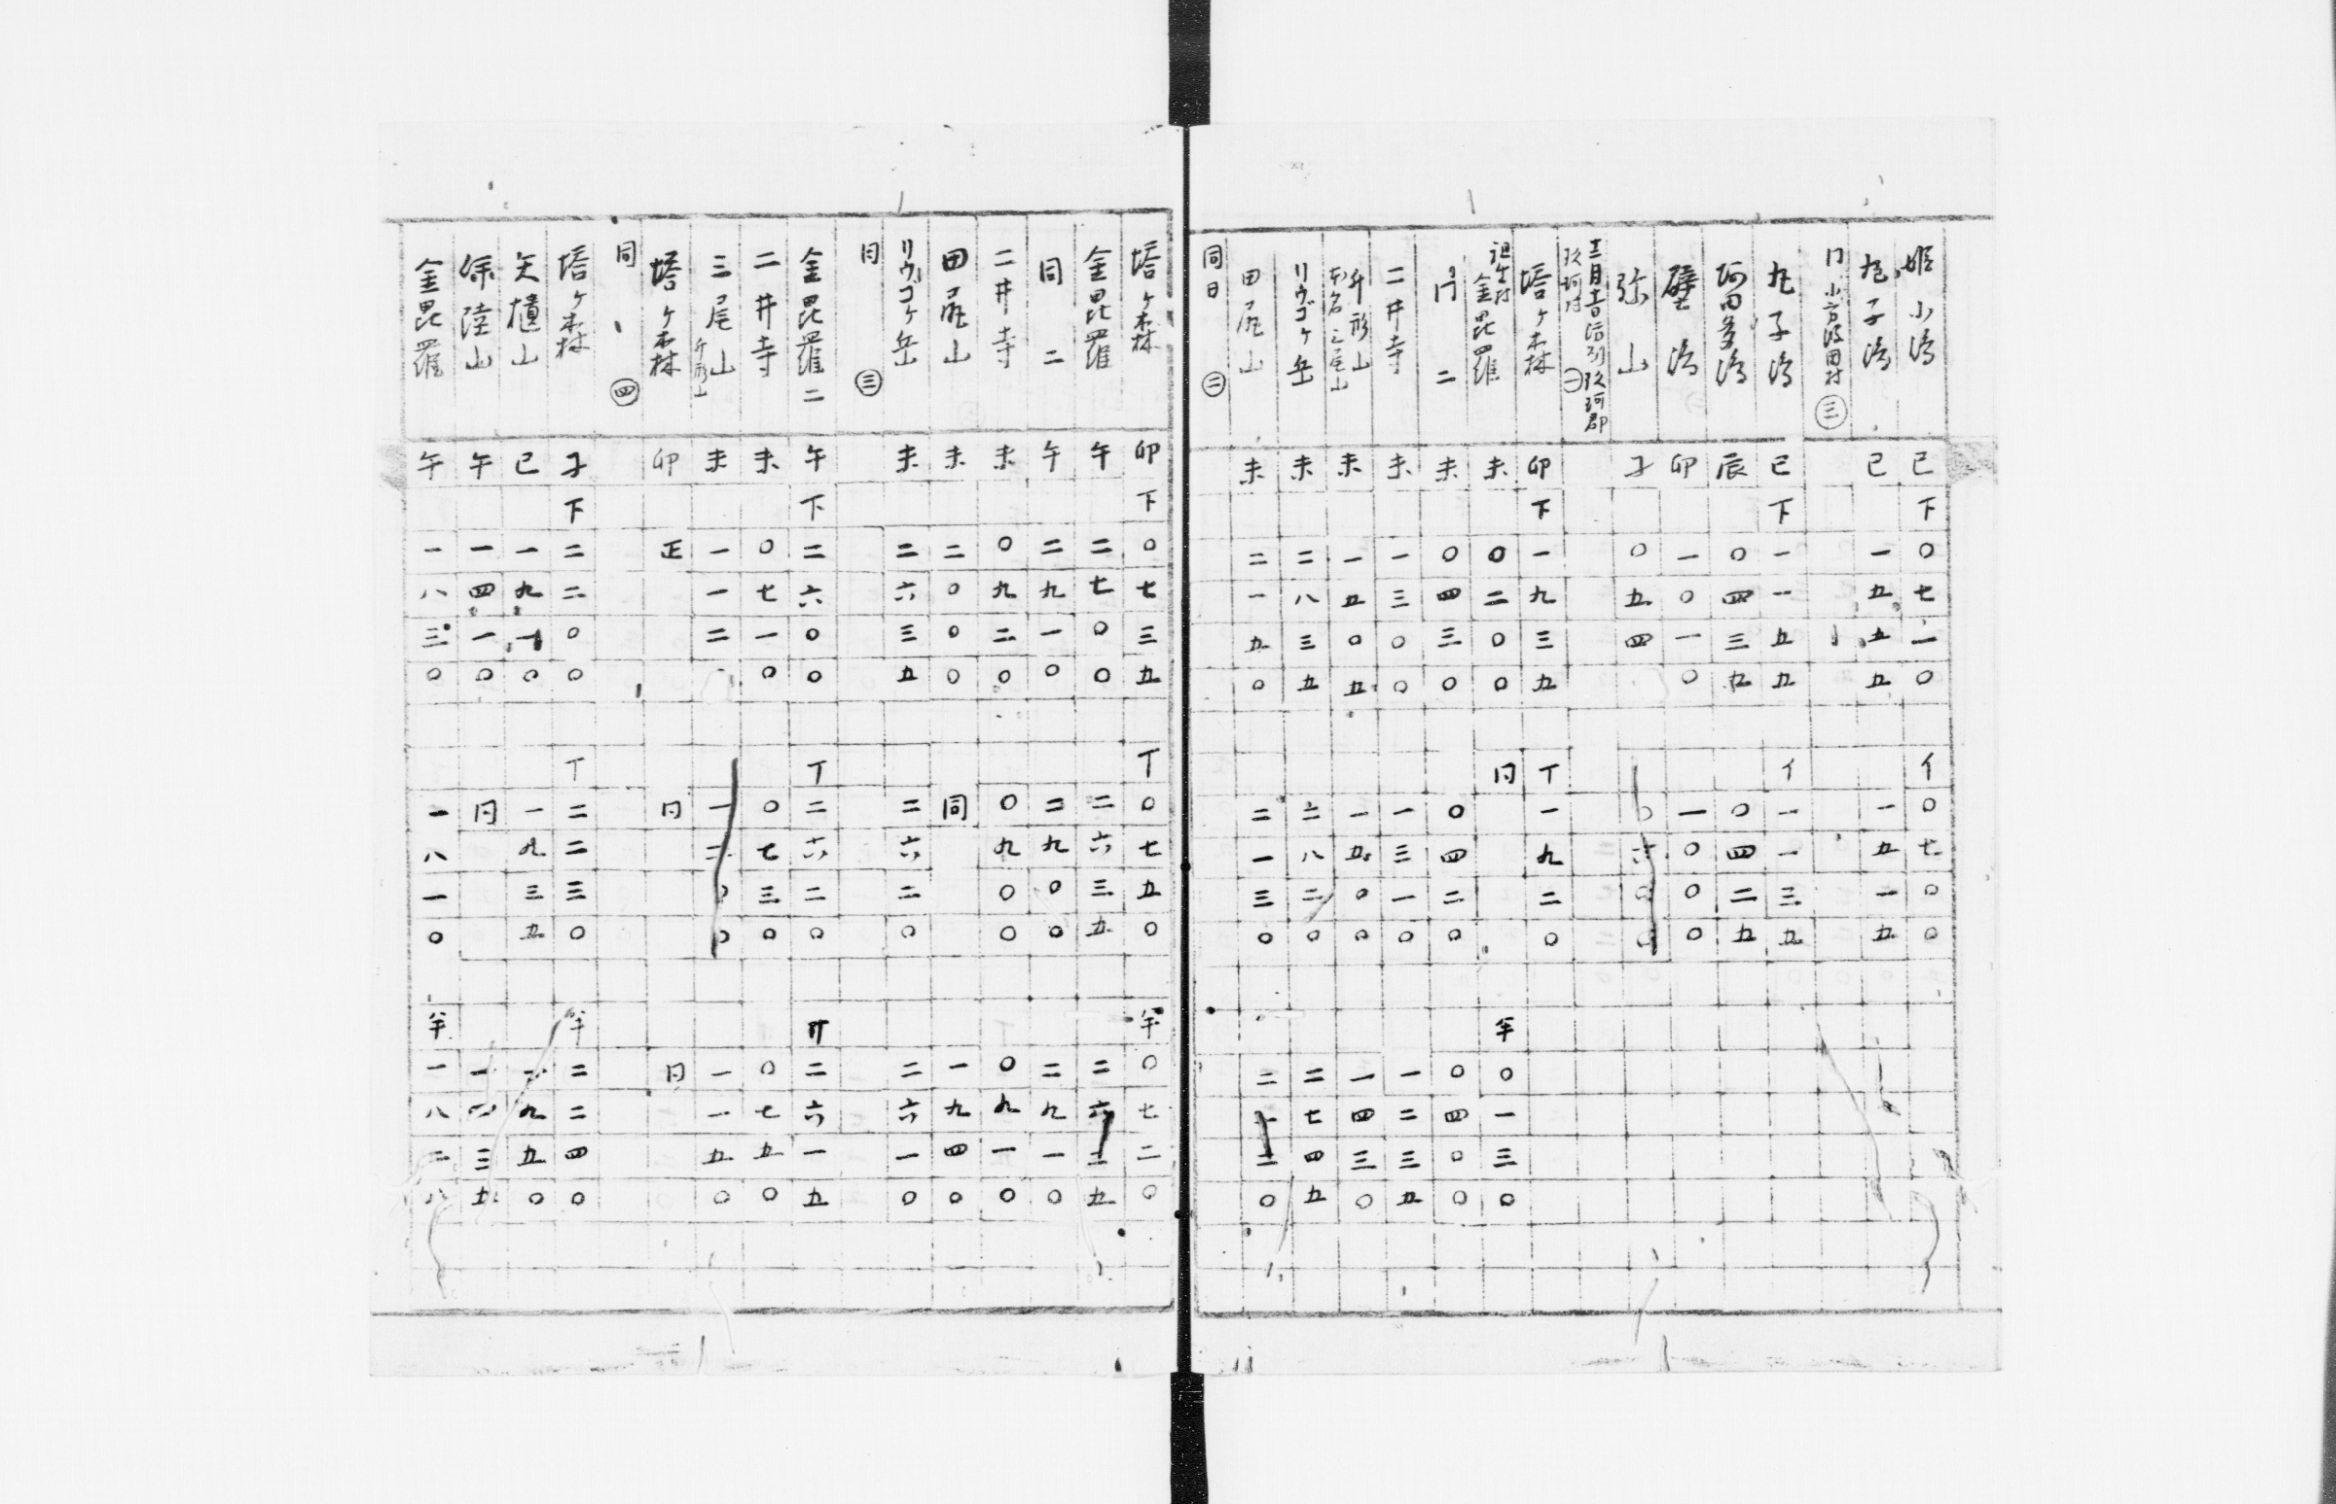 姫小島 巳 下 〇七一〇 イ 〇七〇〇
丸子島 巳 一五五五 一五一五
门 小方波田村 ㊂
丸子島 巳 下 一一五五 イ 一一三五
阿田多島 辰 〇四三五 〇四二五
壁島 卯 一〇一〇 一〇〇〇
弥山 子 〇五四 〇六〇〇
玖珂村 ㊀
塔ヶ森 卯 下 一九三五 丁 一九二〇
祖生村 金毘羅 未 〇二〇〇 同 半 〇一三〇
门 二 未 〇四三〇 〇四二〇 〇四〇〇
二井寺 未 一三〇〇 一三一〇 一二三五
升形山 本名三尾山 未 一五〇五 一五〇〇 一四三〇
リウゴヶ岳 未 二八三五 二八二〇 二七四五
田尻山 未 二一五〇 二一三〇 二一二〇
同日 ㊁
塔ヶ森 卯 下 〇七三五 丁 〇七五〇 半 〇七二〇
金毘羅 午 二七〇〇 二六三五 二六二五
同 二 午 二九一〇 二九〇〇 二九一〇
二井寺 未 〇九二〇 〇九〇〇 〇九一〇
田尻山 未 二〇〇〇 同 一九四〇
リウゴヶ岳 未 二六三五 二六二〇 二六一〇
同 ㊂
金毘羅二 午 下 二六〇〇 丁 二六二〇 二六一五
二井寺 未 〇七一〇 〇七三〇 〇七五〇
三尾山 升形山 未 一一二 一二〇〇 一一五〇
塔ヶ森 卯 正 同 同
同 ㊃
塔ヶ森 子 下 二二〇〇 丁 二二三〇 半 二二四〇
矢櫃山 巳 一九一〇 一九三五 一九五〇
陸山 午 一四一〇 同 一四三五
金毘羅 午 一八三〇 一八一〇 半 一八二八